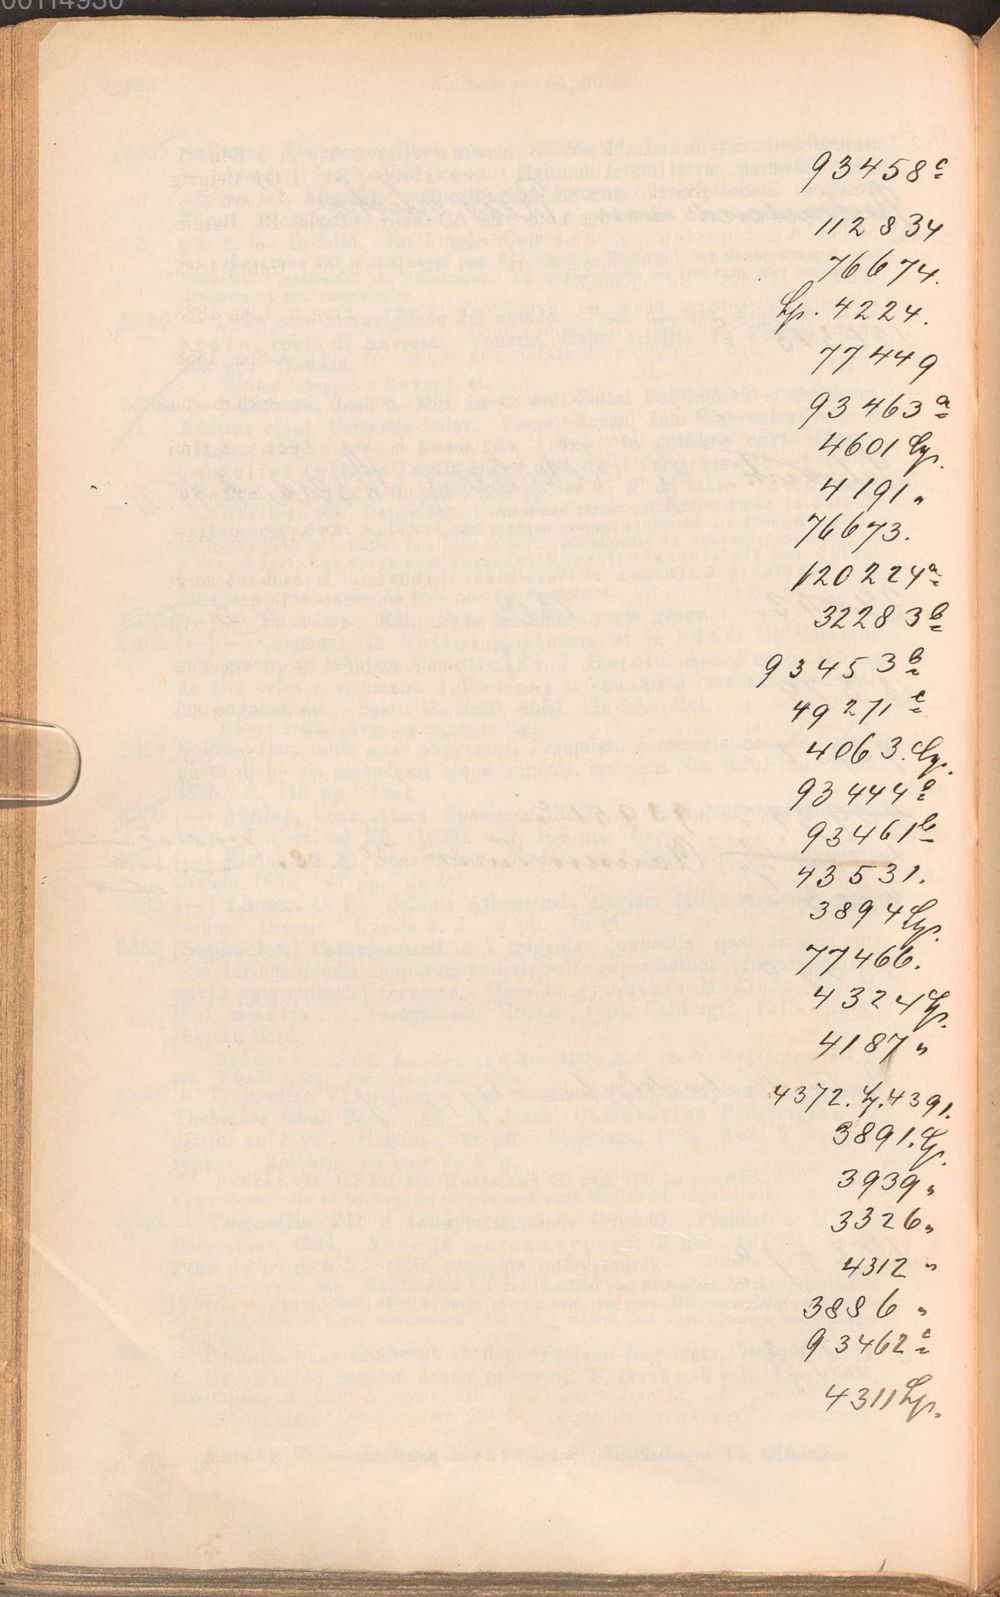 00114930
93458 c
112834
76674.
Lp. 4224.
77449
93463 a
4601 Lp.
4191 "
76673.
120224 a
32283 b
93453 b
49271 c
4063. Lp.
93444 a
93461 b
43531.
3894 Lp.
77466.
4324 Lp.
4187 "
4372. Lp. 4391.
3891. Lp.
3939 "
3326 "
4312 "
3886 "
93462 c
4311 Lp.